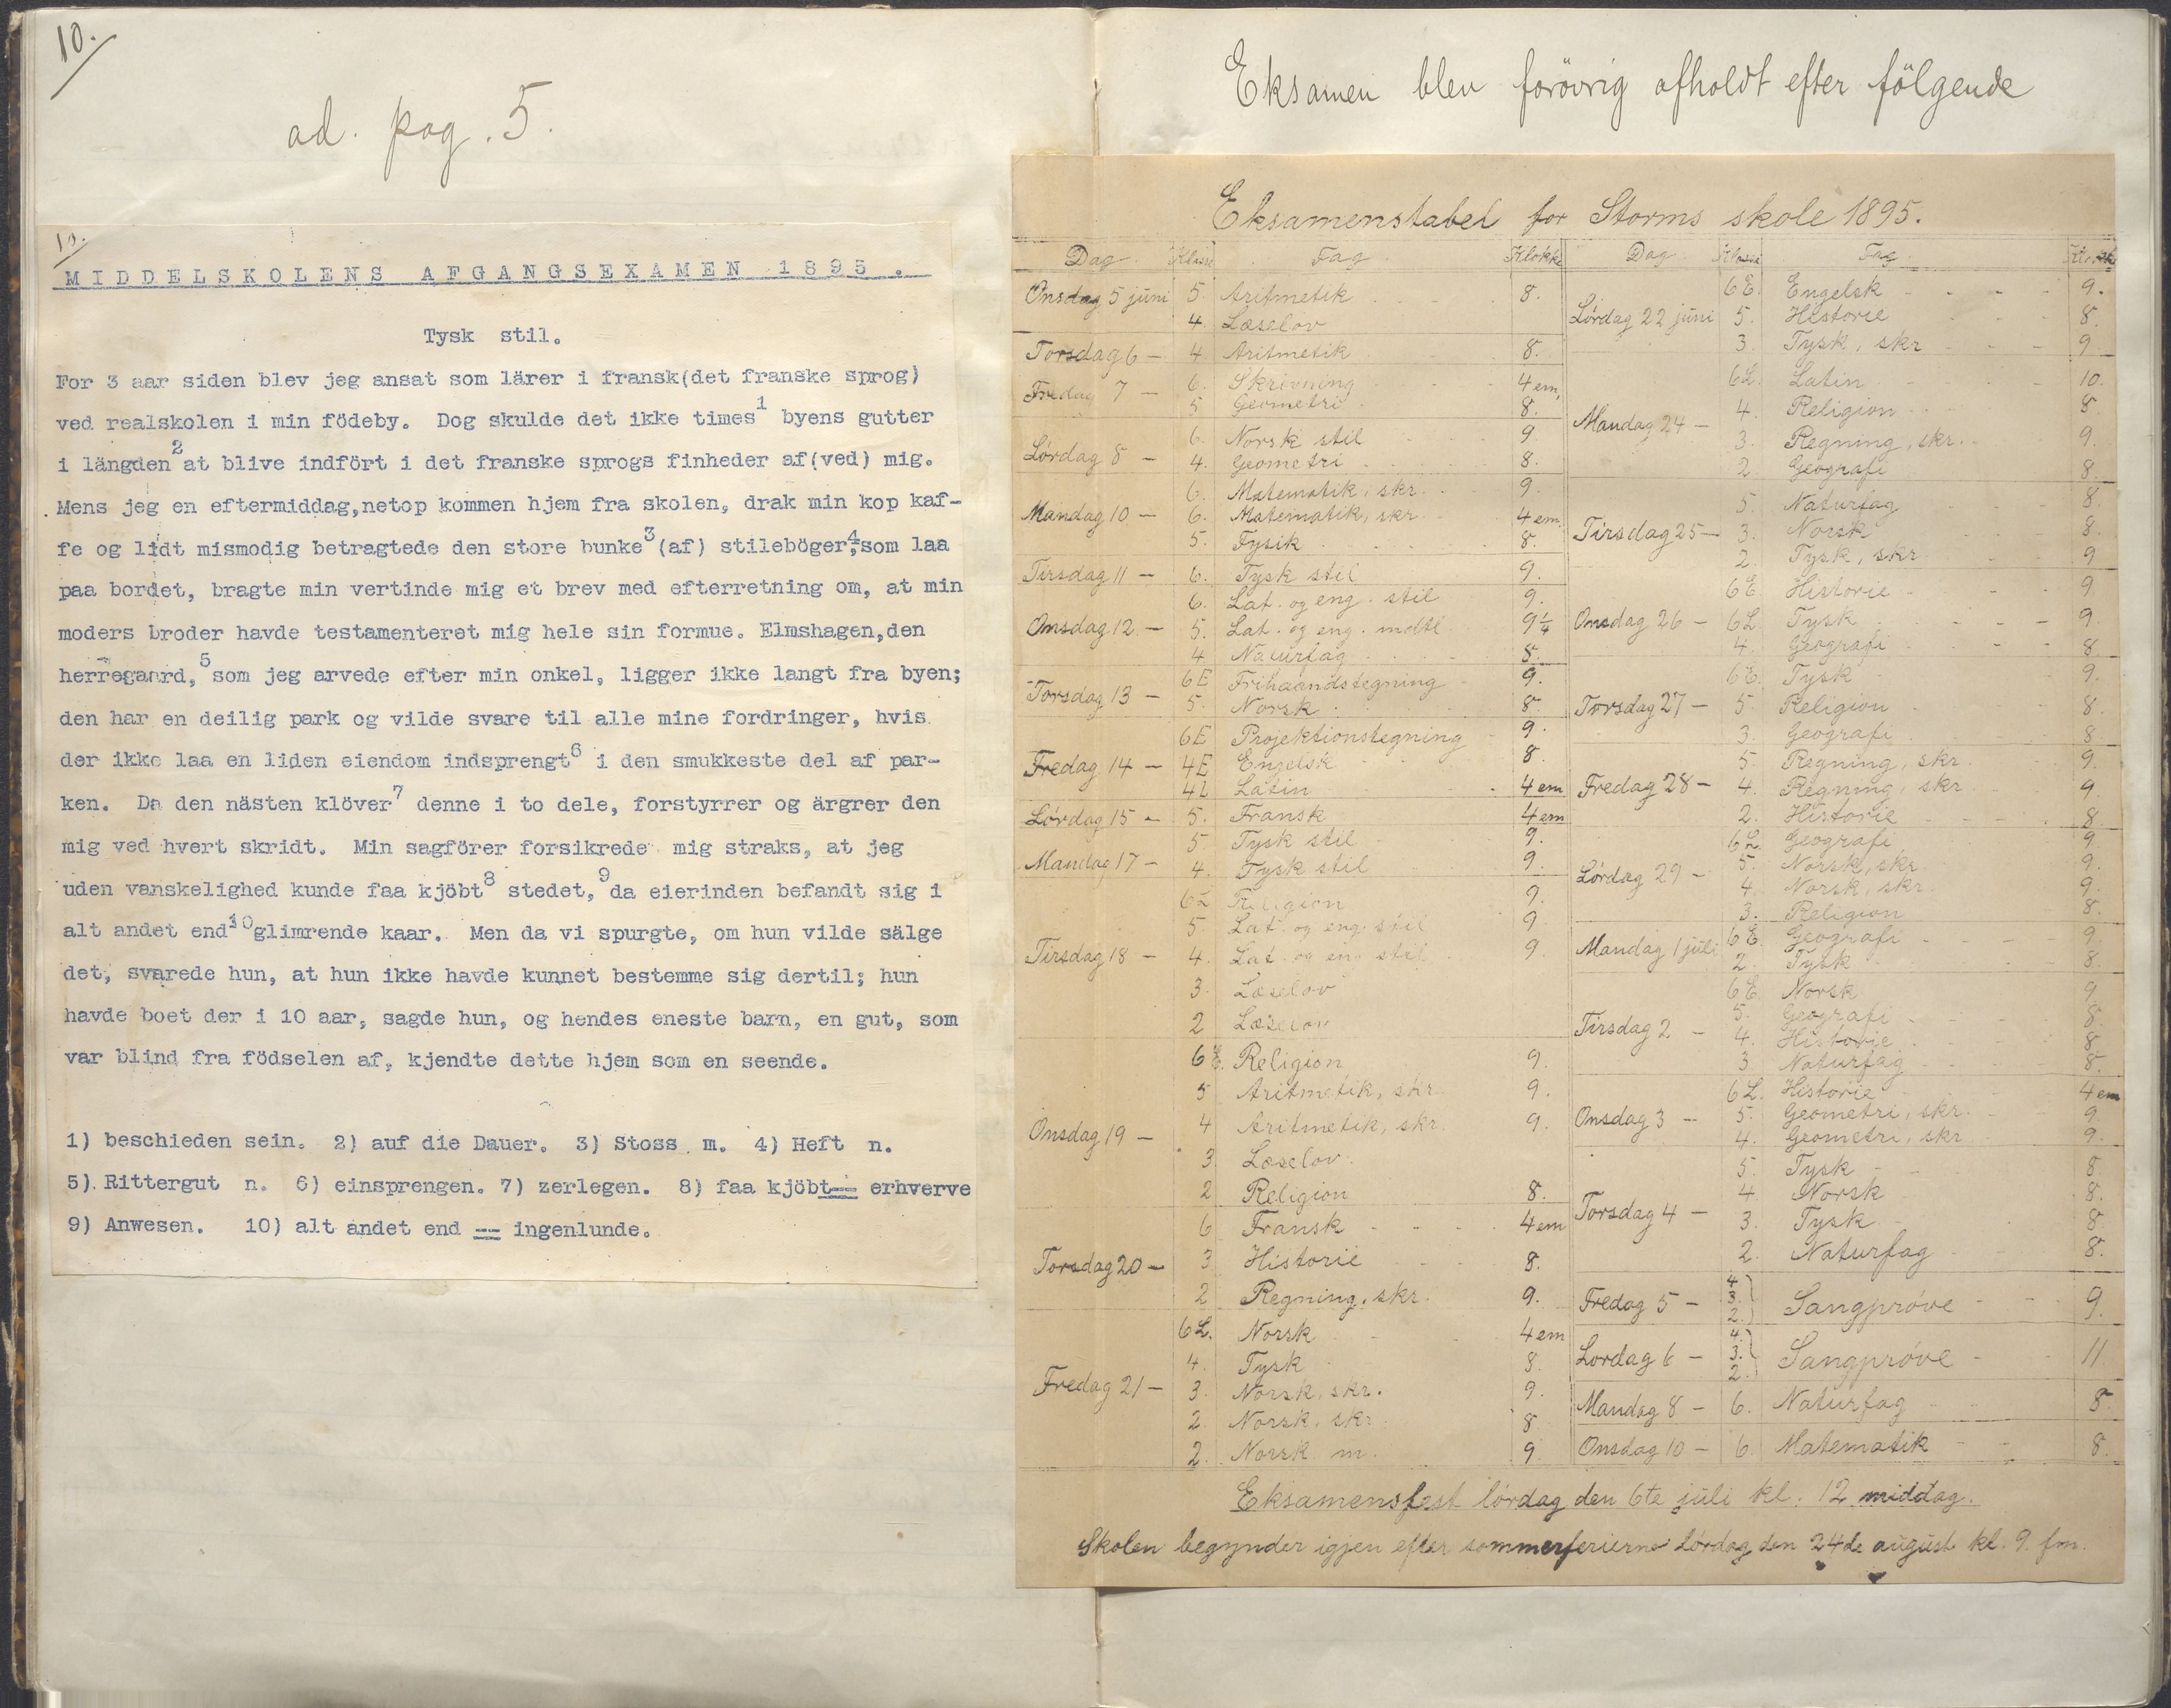 10.
ad. pag. 5.
10.
MIDDELSKOLENS AFGANGSEXAMEN 1895.
Tysk stil.
For 3 aar siden blev jeg ansat som lärer i fransk(det franske sprog)
ved realskolen i min födeby. Dog skulde det ikke times1 byens gutter
i längden2 at blive indfört i det franske sprogs finheder af(ved) mig.
Mens jeg en eftermiddag,netop kommen hjem fra skolen, drak min kop kaf-
fe og lidt mismodig betragtede den store bunke3 (af) stileböger4,som laa
paa bordet, bragte min vertinde mig et brev med efterretning om, at min
moders broder havde testamenteret mig hele sin formue. Elmshagen,den
herregaard,5 som jeg arvede efter min onkel, ligger ikke langt fra byen;
den har en deilig park og vilde svare til alle mine fordringer, hvis
der ikke laa en liden eiendom indsprengt6 i den smukkeste del af par-
ken. Da den nästen klöver7 denne i to dele, forstyrrer og ärgrer den
mig ved hvert skridt. Min sagförer forsikrede mig straks, at jeg
uden vanskelighed kunde faa kjöbt8 stedet,9 da eierinden befandt sig i
alt andet end10 glimrende kaar. Men da vi spurgte, om hun vilde sälge
det, svarede hun, at hun ikke havde kunnet bestemme sig dertil; hun
havde boet der i 10 aar, sagde hun, og hendes eneste barn, en gut, som
var blind fra födselen af, kjendte dette hjem som en seende.
1) beschieden sein. 2) auf die Dauer. 3) Stoss m. 4) Heft n.
5) Rittergut n. 6) einsprengen. 7) zerlegen. 8) faa kjöbt == erhverve
9) Anwesen. 10) alt andet end == ingenlunde.
Eksamen blev forövrig afholdt efter fölgende
Eksamenstabel for Storms skole 1895.
Dag. Klasse Fag. Klokke
Onsdag 5 juni 5. Aritmetik 8.
4. Læselov
Torsdag 6 — 4. Aritmetik 8.
Fredag 7 — 6. Skrivning 4 em.
5 Geometri 8.
Lørdag 8 — 6. Norsk stil 9.
4. Geometri 8.
Mandag 10 — 6. Matematik, skr. 9.
6. Matematik, skr 4 em.
5. Fysik 8.
Tirsdag 11 — 6. Tysk stil 9.
Onsdag 12 — 6. Lat. og eng. stil 9.
5. Lat. og eng. mdtl. 9¼
4 Naturfag 8.
Torsdag 13 — 6E Frihaandstegning 9.
5. Norsk 8.
Fredag 14 — 6E Projektionstegning 9.
4E Engelsk 8.
4L Latin 4 em
Lørdag 15 — 5. Fransk 4 em
Mandag 17 — 5. Tysk stil 9.
4. Tysk stil 9.
Tirsdag 18 — 6L Religion 9.
5. Lat. og eng. stil 9
4. Lat. og eng stil 9
3. Læselov
2 Læselov
Onsdag 19 — 6E. Religion 9.
5 Aritmetik, skr. 9.
4 Aritmetik, skr. 9.
3 Læselov.
2 Religion 8.
Torsdag 20 — 6 Fransk 4 em
3 Historie 8.
2 Regning. skr. 9.
Fredag 21 — 6L. Norsk 4 em
4. Tysk 8.
3. Norsk, skr. 9.
2. Norsk, skr 8
2. Norsk m. 9.
Dag Klasse Fag. Klokke
Lørdag 22 juni 6E. Engelsk 9.
5. Historie 8.
3. Tysk, skr 9.
Mandag 24 — 6L. Latin 10.
4. Religion 8
3. Regning, skr. 9.
2. Geografi 8.
Tirsdag 25 — 5. Naturfag 8.
3. Norsk 8.
2. Tysk, skr 9
Onsdag 26 — 6E Historie 9
6L Tysk 9.
4. Geografi 8.
Torsdag 27 — 6E. Tysk 9.
5. Religion 8.
3. Geografi 8
Fredag 28 — 5. Regning, skr. 9.
4. Regning, skr 9.
2. Historie 8.
Lørdag 29 — 6L. Geografi 9.
5. Norsk, skr 9.
4. Norsk, skr. 9.
3. Religion 8.
Mandag 1 juli 6E. Geografi 9.
2. Tysk 8.
Tirsdag 2 — 6E. Norsk 9.
5. Geografi 8.
4. Historie 8.
3 Naturfag 8.
Onsdag 3 — 6L. Historie 4 em
5. Geometri, skr. 9
4. Geometri, skr 9.
Torsdag 4 — 5. Tysk 8.
4. Norsk 8.
3. Tysk 8.
2. Naturfag 8.
Fredag 5 — 4. 3. 2. Sangprøve 9.
Lørdag 6 — 4. 3. 2. Sangprøve 11.
Mandag 8 — 6. Naturfag 8.
Onsdag 10 — 6. Matematik 8.
Eksamensfest lørdag den 6te juli kl. 12 middag.
Skolen begynder igjen efter sommerferierne Lørdag den 24de august kl. 9. fm.